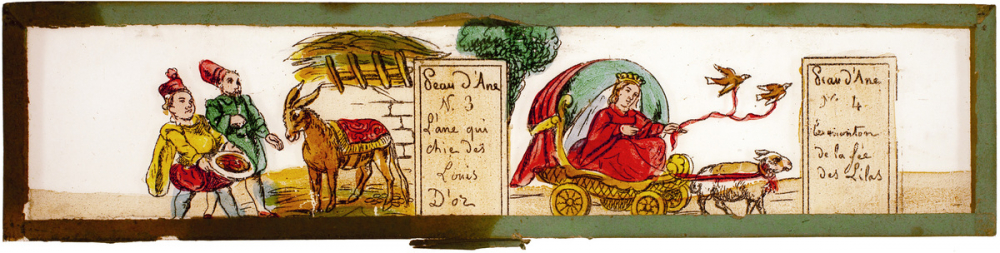 Peau d'Ane
N. 3
L'ane qui
chie des
Louis
D'or
Peau d'Ane
N. 4
Le mouton
de la fée
des Lilas